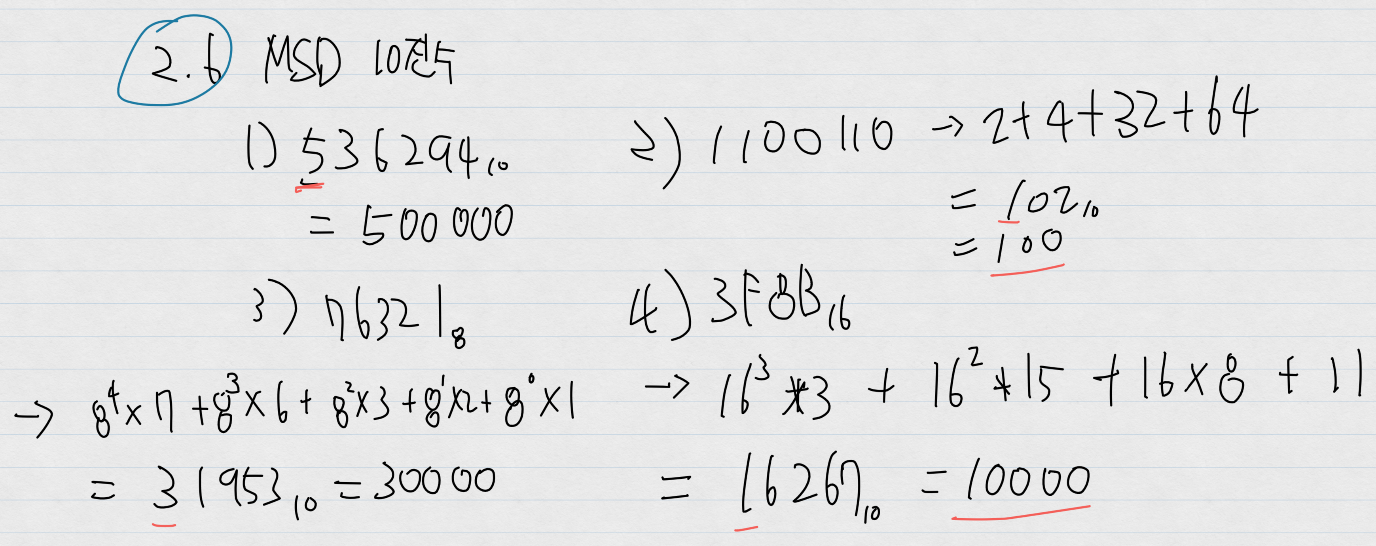 2.6 MSD 10진수
1) 536294₁₀
= 500000
2) 1100110 → 2+4+32+64
= 102₁₀
= 100
3) 76321₈
→ 8⁴×7+8³×6+8²×3+8¹×2+8⁰×1
= 31953₁₀ = 30000
4) 3F8B₁₆
→ 16³*3 + 16²*15 + 16×8 + 11
= 16267₁₀ = 10000